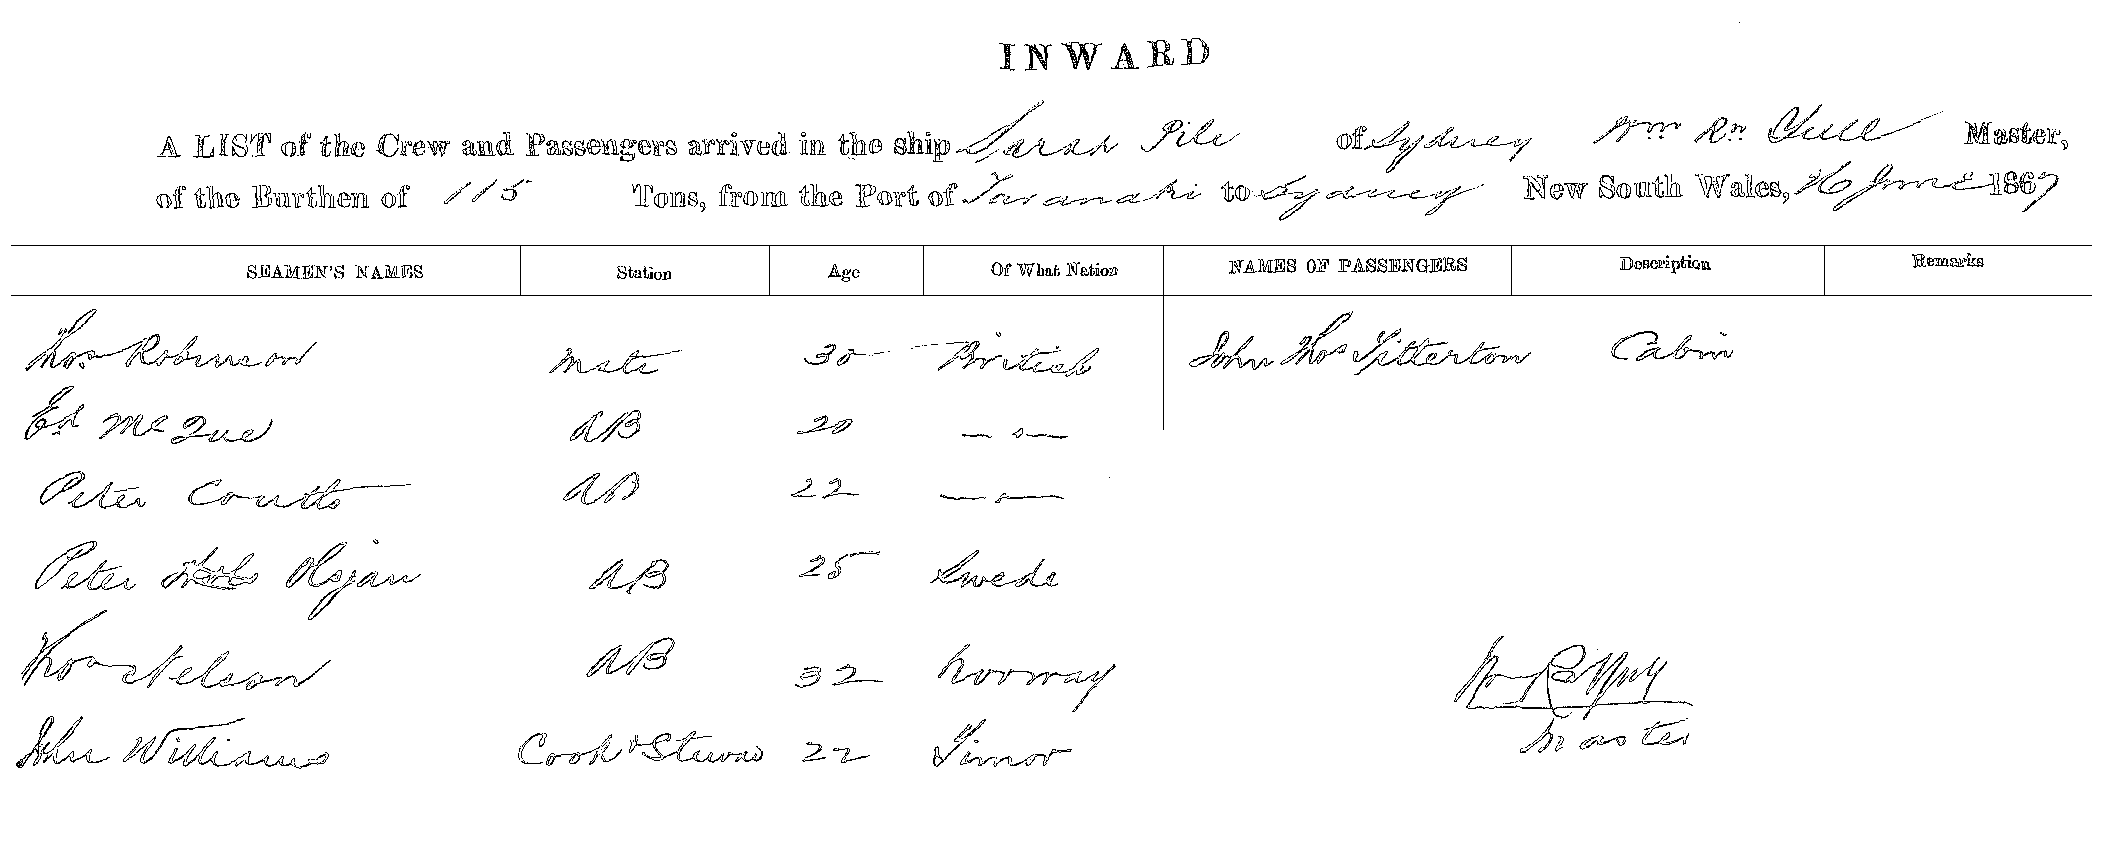 INWARD
A LIST of the Crew and Passengers arrived in the ship Sarah Pile of Sydney Wm Rn Master,
of the Burthen of 115 Tons, from the Port of Taranaki to Sydney New South Wales, 26 June 1867
SEAMEN'S NAMES Station Age Of What Nation NAMES OF PASSENGERS Description Remarks
Thos Robinson Mate 30 British John Thos Titterton Cabin
Ed McQue AB 20 — „ —
Peter Coutts AB 22 — „ —
Peter Olsjan AB 25 Swede
Thos Nelson AB 32 Norway
John Williams Cook & Steward 22 Timor
Master